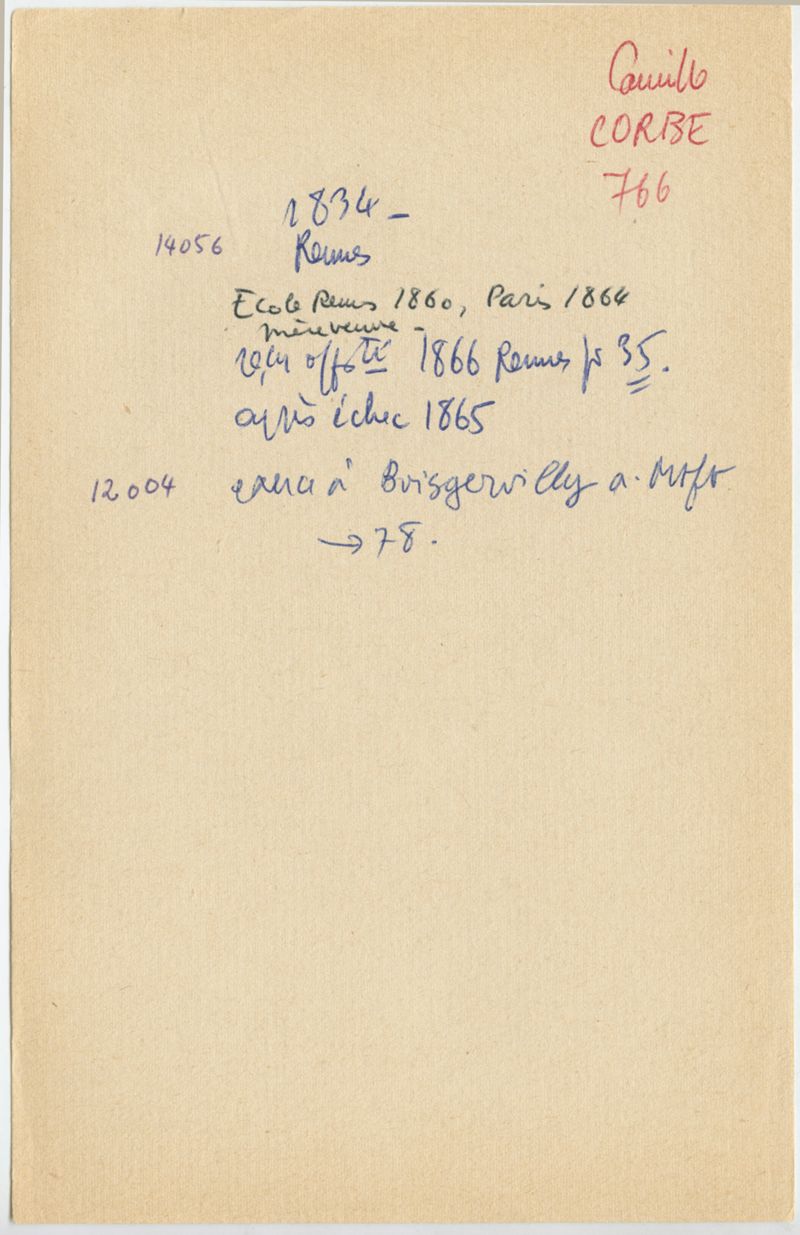 Camille
CORBE
766
1834 –
14056 Rennes
Ecole Rennes 1860, Paris 1864
mère veuve –
reçu off 1866 Rennes pr 35.
après échec 1865
12004 exerce à Boisgervilly a. Mtft
→ 78.